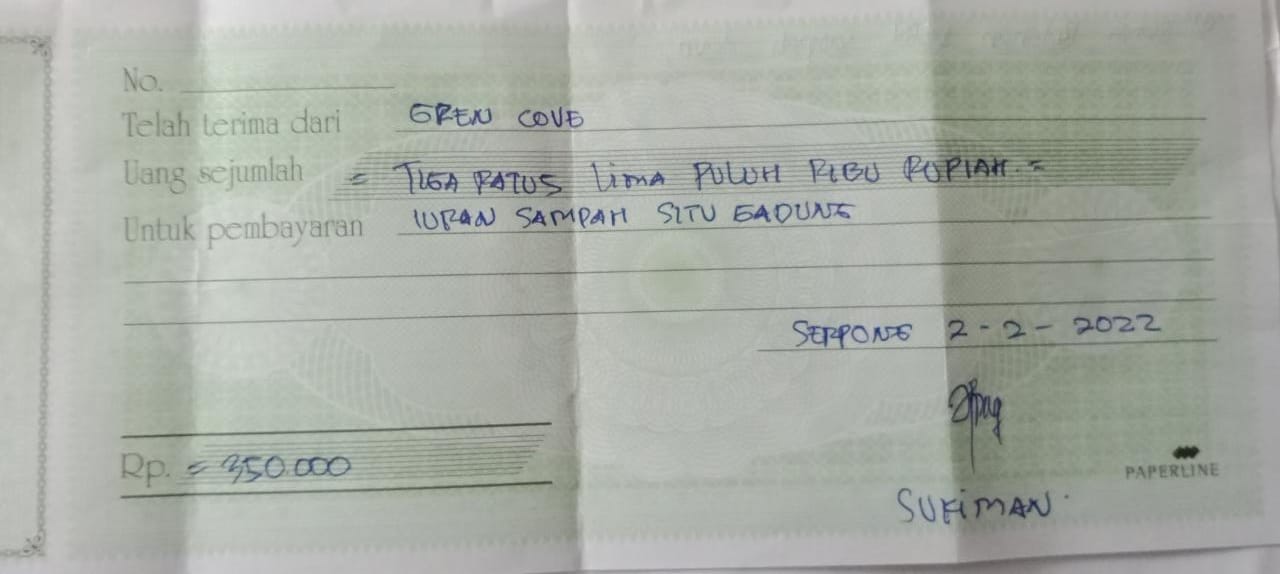 No.
Telah terima dari GREN COVE
Uang sejumlah = TIGA RATUS LIMA PULUH RIBU RUPIAH. =
Untuk pembayaran IURAN SAMPAH SITU GADUNG
SERPONG 2-2-2022
Rp. = 350.000
PAPERLINE
SUKIMAN.